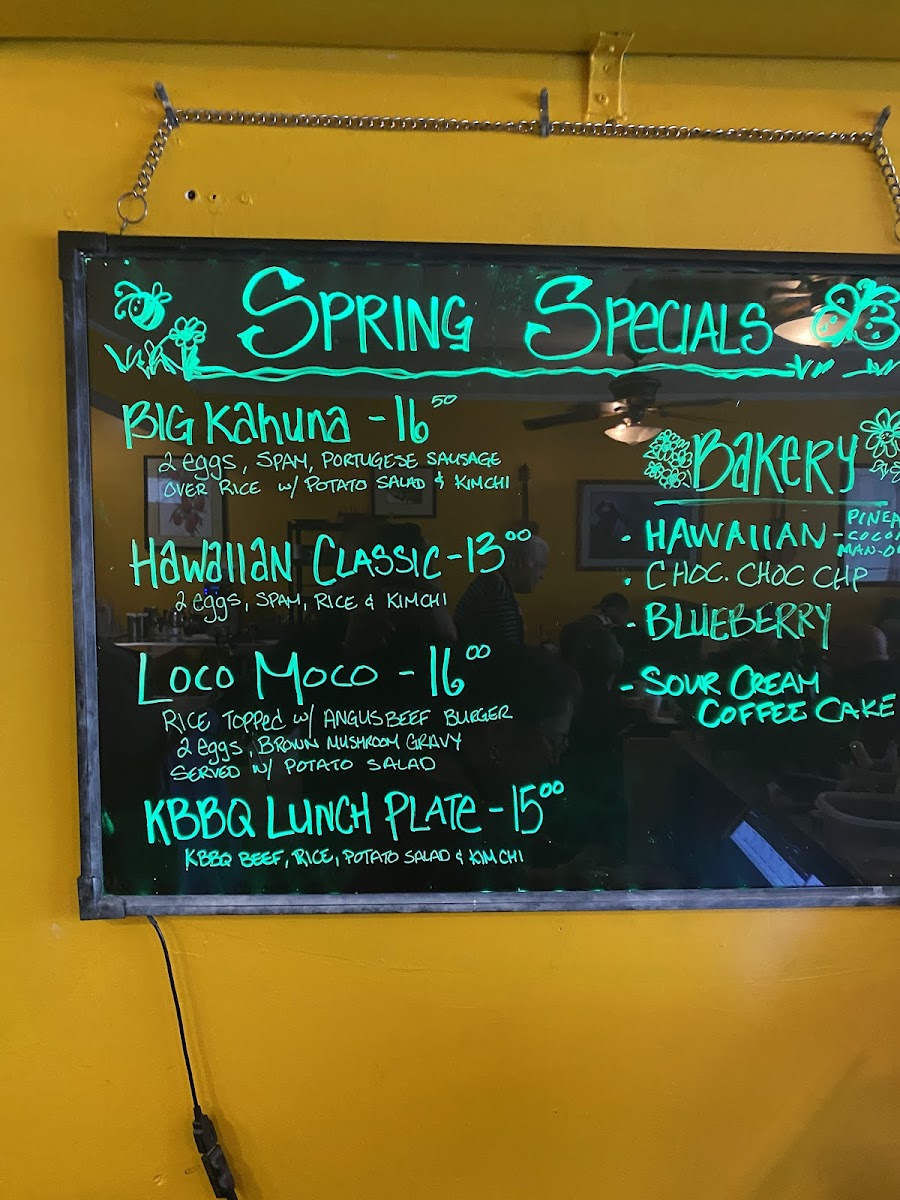 SPRING SPECIALS
BIG KAHUNA - 16 50
2 EGGS, SPAM, PORTUGESE SAUSAGE
OVER RICE W/ POTATO SALAD & KIMCHI
HAWAIIAN CLASSIC - 13 00
2 EGGS, SPAM, RICE & KIMCHI
LOCO MOCO - 16 00
RICE TOPPED W/ ANGUS BEEF BURGER
2 EGGS, BROWN MUSHROOM GRAVY
SERVED W/ POTATO SALAD
KBBQ LUNCH PLATE - 15 00
KBBQ BEEF, RICE, POTATO SALAD & KIMCHI
BAKERY
· HAWAIIAN -
· CHOC. CHOC CHP
- BLUEBERRY
- SOUR CREAM
COFFEE CAKE